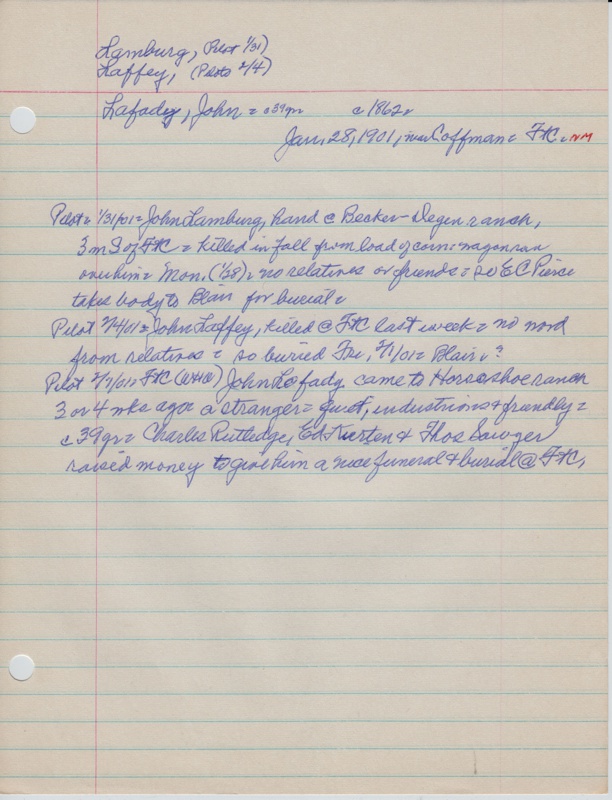 Lamburg, (Pilot 1/31)
Laffey, (Pilots 2/4)
Lafady, John = c39yr c1862
Jan. 28, 1901, nr Coffman = FtC = NM
Pilot = 1/31/01 = John Lamburg, hand @ Becker-Degen ranch,
3 m S of FtC = killed in fall from load of corn = wagon ran
over him = Mon. (1/28) = no relatives or friends = so E C Pierce
takes body to Blair for burial =
Pilot 2/4/01 = John Laffey, killed @ FtC last week = no word
from relatives = so buried Fri, 2/1/01 = Blair = ?
Pilot 2/7/01 = FtC John Lafady came to Horseshoe ranch
3 or 4 wks ago = a stranger = quiet, industrious & friendly =
c39yr = Charles Rutledge, Ed Kuerten & Thos Sawyer
raised money to give him a nice funeral & burial @ FtC.